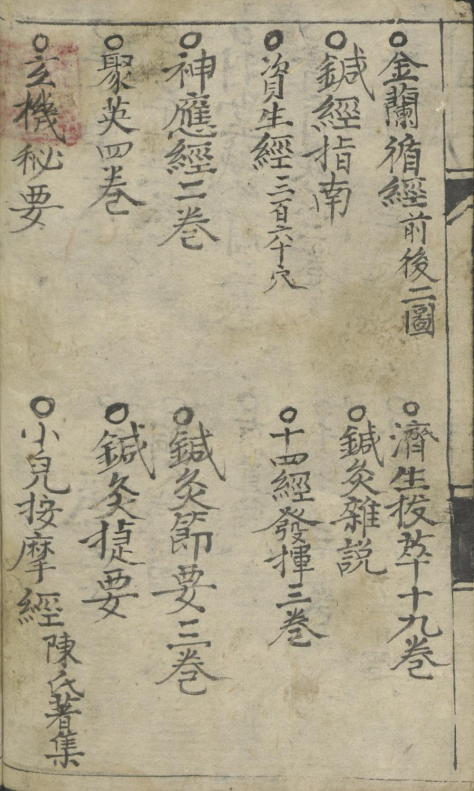 ○金蘭循經前後二圖
○濟生拔萃十九巻
○鍼經指南
○鍼灸雜説
○資生經三百六十穴
○十四經發揮三巻
○神應經二巻
○鍼灸節要三巻
○聚英四巻
○鍼灸捷要
○玄機秘要
○小兒按摩經陳氏著集